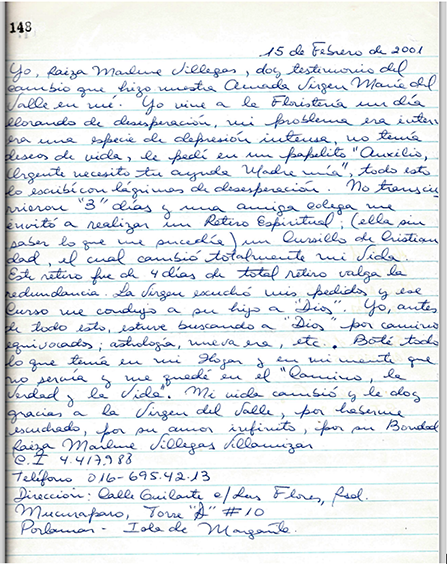 148
15 de Febrero de 2001
Yo, Raiza Marlene Villegas, doy testimonio del
cambio que hizo nuestra Amada Virgen María del
Valle en mí. Yo vine a la Floristería un día
llorando de desesperación, mi problema era inter
era una especie de depresión intensa, no tenía
deseos de vida, le pedí en un papelito "Auxilio,
Urgente necesito tu ayuda Madre mía", todo esto
lo escribí con lágrimas de desesperación. No transcu
rrieron "3" días y una amiga colega me
invitó a realizar un Retiro Espiritual, (ella sin
saber lo que me sucedía) un Cursillo de Cristian
dad, el cual cambió totalmente mi Vida.
Este retiro fue de 4 días de total retiro valga la
redundancia. La Virgen escuchó mis pedidos y ese
Curso me condujo a su hijo a "Dios". Yo, antes
de todo esto, estuve buscando a "Dios" por camino
equivocados; astrología, nueva era, etc. Boté todo
lo que tenía en mi Hogar y en mi mente que
no servía y me quedé en el "Camino, la
Verdad y la Vida". Mi vida cambió y le doy
gracias a la Virgen del Valle, por haberme
escuchado, por su amor infinito, ¡por su Bondad
Raiza Marlene Villegas Villamizar
C.I 4.417.988
Teléfono 016-695.42.13
Dirección: Calle c/ Las Flores, Resd.
Mucuraparo, Torre "A" #10
Porlamar - Isla de Margarita.